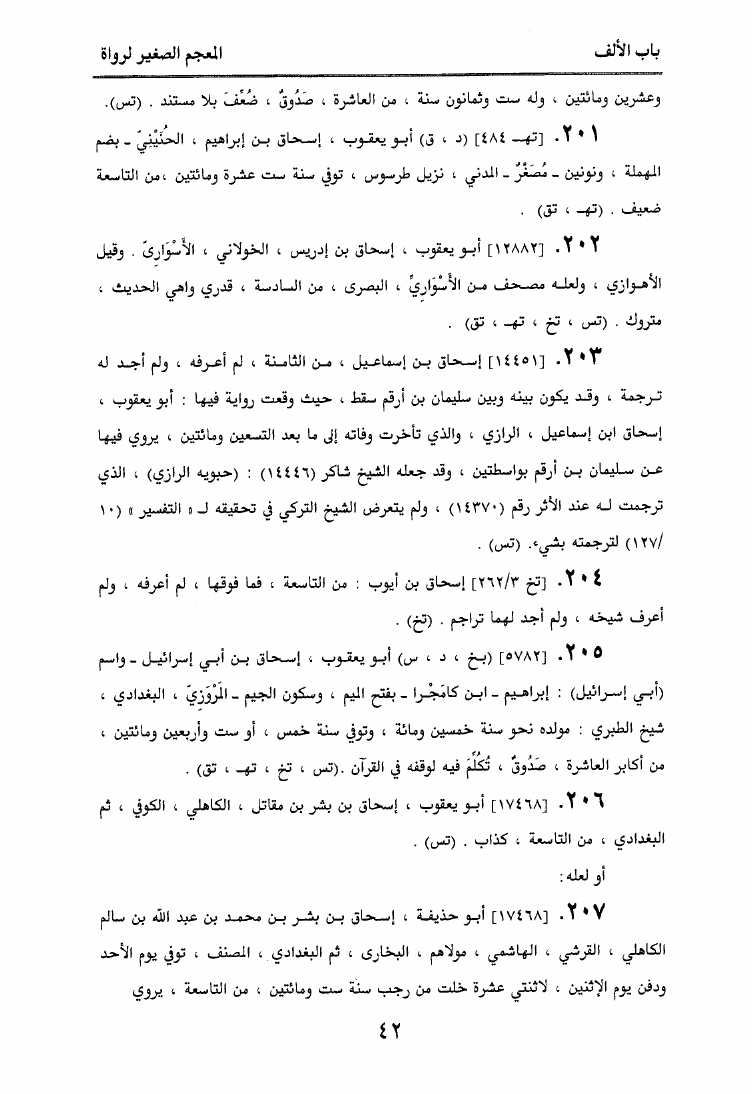 باب الألف
المعجم الصغير لرواة
وعشرين ومائتين ، وله ست وثمانون سنة ، من العاشرة ، صَدُوقٌ ، ضُعِّفَ بلا مستند . (تس).
٢٠١. [تهـ ٤٨٤] (د ، ق) أبو يعقوب ، إسحاق بن إبراهيم ، الحُنَيْنِيّ ـ بضم
المهملة ، ونونين ـ مُصَغَّرٌ ـ المدني ، نزيل طرسوس ، توفي سنة ست عشرة ومائتين ،من التاسعة
ضعيف . (تهـ ، تق) .
٢٠٢. [١٢٨٨٢] أبو يعقوب ، إسحاق بن إدريس ، الخولاني ، الأَسْوَارِىّ . وقيل
الأهوازي ، ولعله مصحف من الأَسْوَارِيِّ ، البصرى ، من السادسة ، قدري واهي الحديث ،
متروك . (تس ، تخ ، تهـ ، تق) .
٢٠٣. [١٤٤٥١] إسحاق بن إسماعيل ، من الثامنة ، لم أعرفه ، ولم أجد له
ترجمة ، وقد يكون بينه وبين سليمان بن أرقم سقط ، حيث وقعت رواية فيها : أبو يعقوب ،
إسحاق ابن إسماعيل ، الرازي ، والذي تأخرت وفاته إلى ما بعد التسعين ومائتين ، يروي فيها
عن سليمان بن أرقم بواسطتين ، وقد جعله الشيخ شاكر (١٤٤٤٦) : (حبويه الرازي) ، الذي
ترجمت له عند الأثر رقم (١٤٣٧٠) ، ولم يتعرض الشيخ التركي في تحقيقه لـ « التفسير » (١٠
/١٢٧) لترجمته بشيء. (تس) .
٢٠٤. [تخ ٢٦٢/٣] إسحاق بن أيوب : من التاسعة ، فما فوقها ، لم أعرفه ، ولم
أعرف شيخه ، ولم أجد لهما تراجم . (تخ) .
٢٠٥. [٥٧٨٢] (بخ ، د ، س) أبو يعقوب ، إسحاق بن أبي إسرائيل ـ واسم
(أبي إسرائيل) : إبراهيم ـ ابن كامَجْرا ـ بفتح الميم ، وسكون الجيم ـ المَرْوَزِيّ ، البغدادي ،
شيخ الطبري : مولده نحو سنة خمسين ومائة ، وتوفي سنة خمس ، أو ست وأربعين ومائتين ،
من أكابر العاشرة ، صَدُوقٌ ، تُكُلِّمَ فيه لوقفه في القرآن .(تس ، تخ ، تهـ ، تق) .
٢٠٦. [١٧٤٦٨] أبو يعقوب ، إسحاق بن بشر بن مقاتل ، الكاهلي ، الكوفي ، ثم
البغدادي ، من التاسعة ، كذاب . (تس) .
أو لعله:
٢٠٧. [١٧٤٦٨] أبو حذيفة ، إسحاق بن بشر بن محمد بن عبد الله بن سالم
الكاهلي ، القرشي ، الهاشمي ، مولاهم ، البخارى ، ثم البغدادي ، المصنف ، توفي يوم الأحد
ودفن يوم الإثنين ، لاثنتي عشرة خلت من رجب سنة ست ومائتين ، من التاسعة ، يروي
٤٢